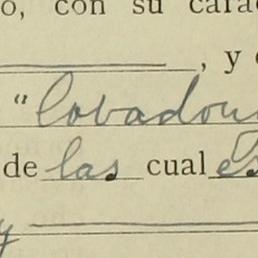 o, con su cara
, y
"Covadon
de las cual es
y